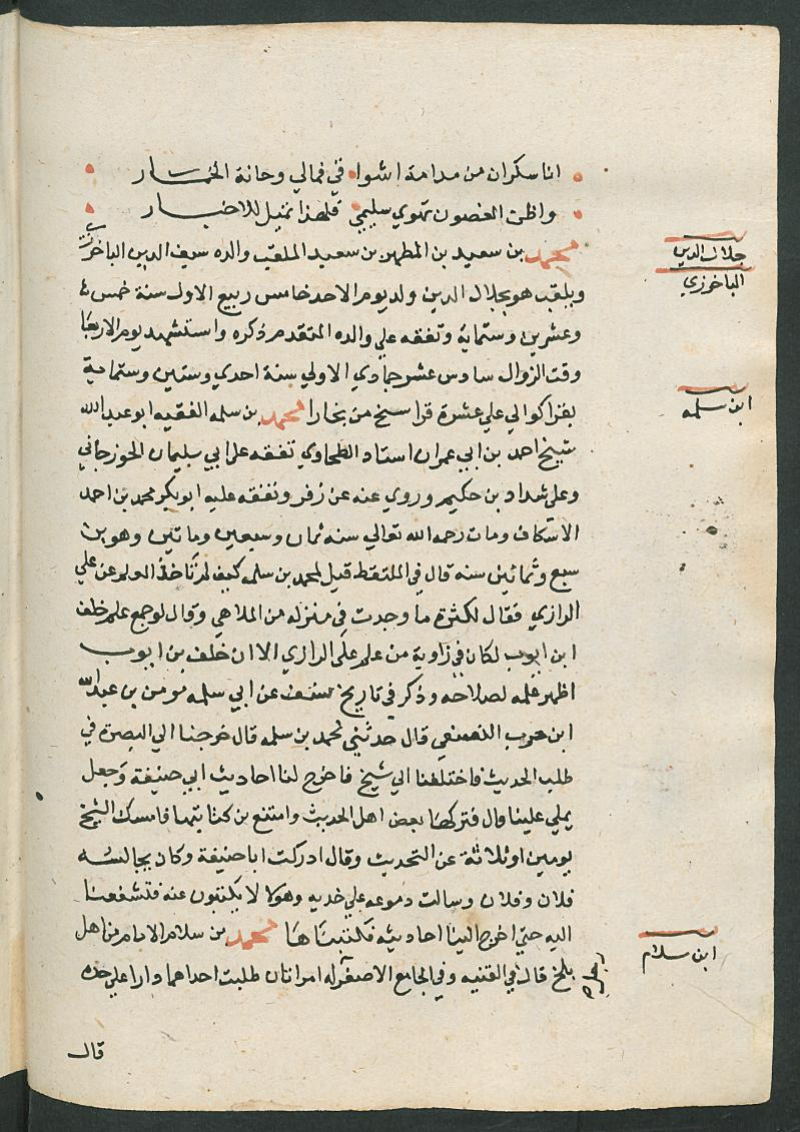 انا سكران من مدامة اشوا في فمالي وحانة الخمار
واظن الغصون تهوي سليمي فلهذا تميل للاخبار
محمد بن سعيد بن المطهر بن سعيد الملقب والده سيف الدين الباخرزي
ويلقب هو بجلال الدين ولد يوم الاحد خامس ربيع الاول سنة خمس
وعشرين وستماية وتفقه علي والده المتقدم ذكره واستشهد يوم الاربعا
وقت الزوال سادس عشر جمادي الاولي سنة احدي وستين وستماية
بقرا كوالي علي عشرة فراسخ من بخارا محمد بن سلمه الفقيه ابو عبد الله
شيخ احمد بن ابي عمران استاد الطحاوي تفقه علي ابي سليمان الجوزجاني
وعلي شداد بن حكيم وروي عنه عن زفر وتفقه عليه ابو بكر محمد بن احمد
الاسكاف ومات رحمه الله تعالي سنه ثمان وسبعين وماتين وهو بن
سبع وثمانين سنه قال في الملتقط قيل لمحمد بن سلمه كيف لم تاخذ العلم عن علي
الرازي فقال لكثرة ما وجدت في منزله من الملاهي وقال لو جمع علم خلف
ابن ايوب لكان في زاوية من علم علي الرازي الا ان خلف بن ايوب
اظهر علمه لصلاحه وذكر في تاريخ نسف عن ابي سلمه مومن بن عبد الله
ابن حرب النسفي قال حدثني محمد بن سلمه قال خرجنا الي البصرة في
طلب الحديث فاختلفنا الي شيخ فاخرج لنا احاديث ابي حنيفة وجعل
يملي علينا قال فتركها بعض اهل الحديث وامتنع بن كتابتها فامسك الشيخ
يومين او ثلاثة عن التحديث وقال ادركت ابا حنيفة وكان يجالسه
فلان وفلان وسالت دموعه علي خديه وهولا لا يكتبون عنه فتشفعنا
اليه حتي اخرج الينا احاديثه فكتبناها محمد بن سلام الامام من اهل
بلخ قال في القنيه وفي الجامع الاصغر له امراتان طلبت احداهما دارا علي حده
قال
جلال الدين
الباخرزي
ابن سلمه
ابن سلام